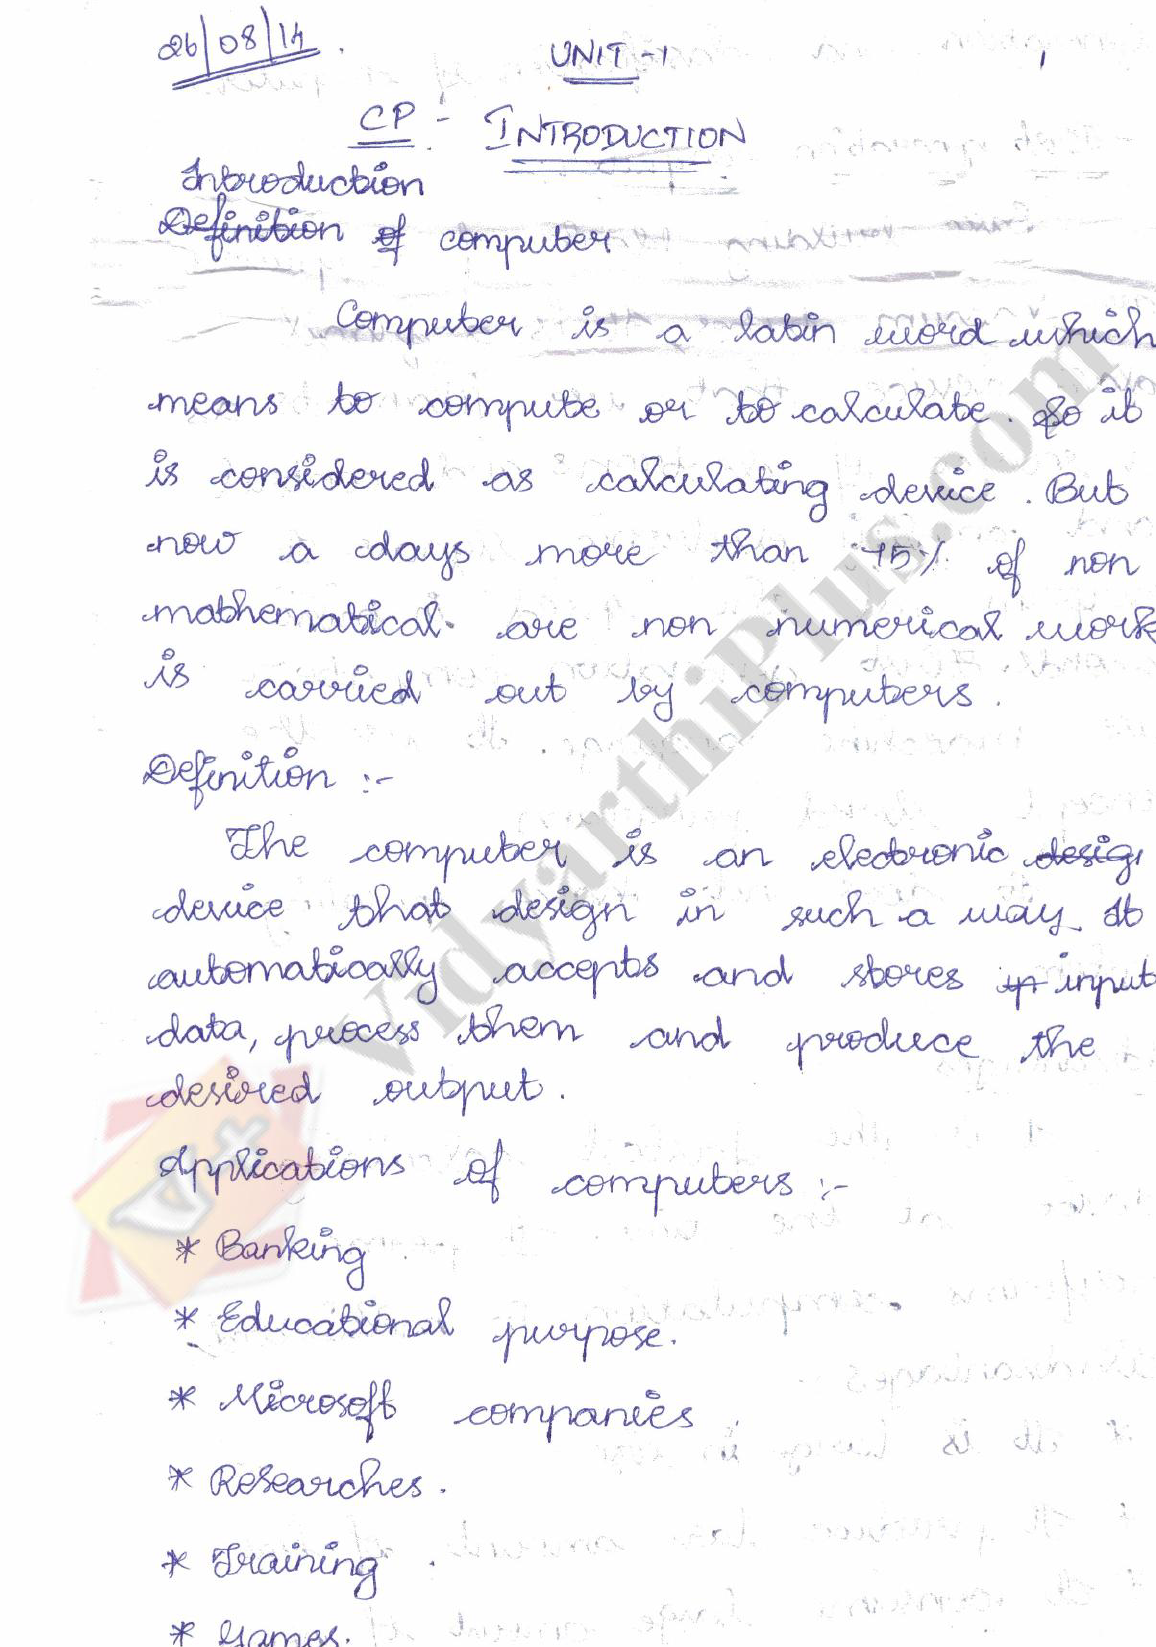 26/08/14.
UNIT-1
1
CP - INTRODUCTION
Introduction
Definition of computer
Computer is a latin word which
means to compute or to calculate. So it
is considered as calculating device. But
now a days more than 75% of non
mathematical are non numerical work
is carried out by computers.
Definition :-
The computer is an electronic desig
device that design in such a way. It
automatically accepts and stores ip input
data, process them and produce the
desired output.
Applications of computers :-
* Banking
* Educational purpose.
* Microsoft companies
* Researches.
* Training.
* Games.
VidyarthiPlus.com
V+